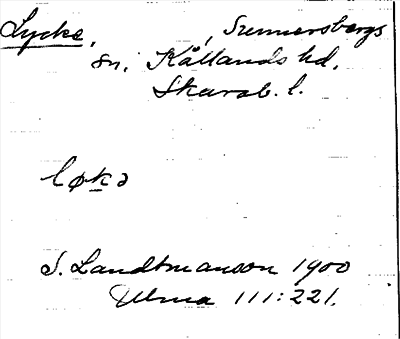 Lycke, , Sunnersbergs
sn, Kållands hd,
Skarab. l.
løkə
S. Landtmanson 1900
Ulma 111:221.